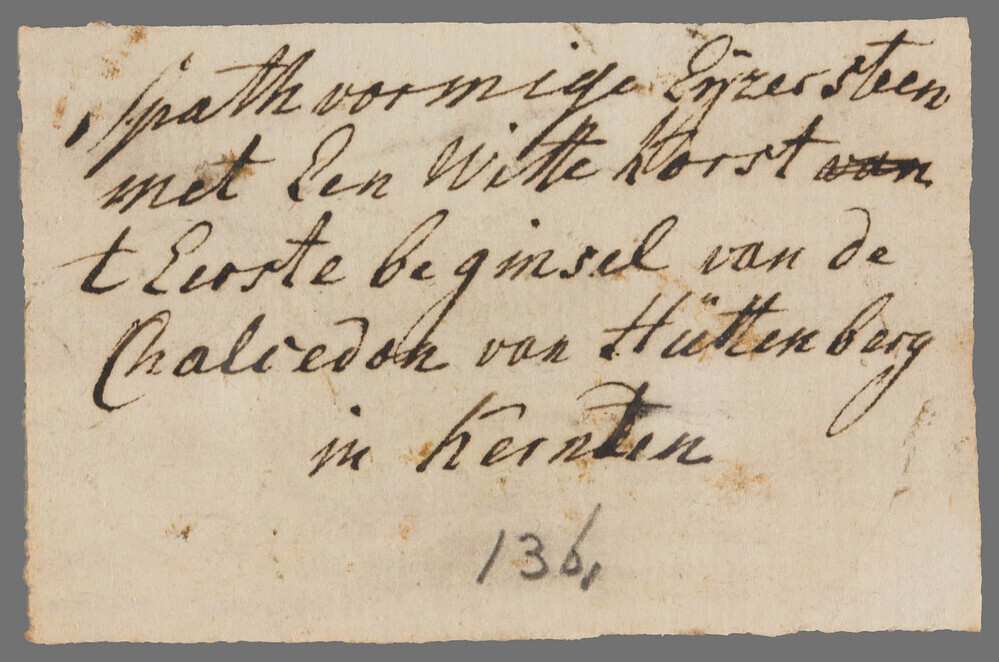 Spathvormige Eijzersteen
met Een Witte korst van
t Eerste beginsel van de
Chalcedon van Hüttenberg
in Kernten
136,